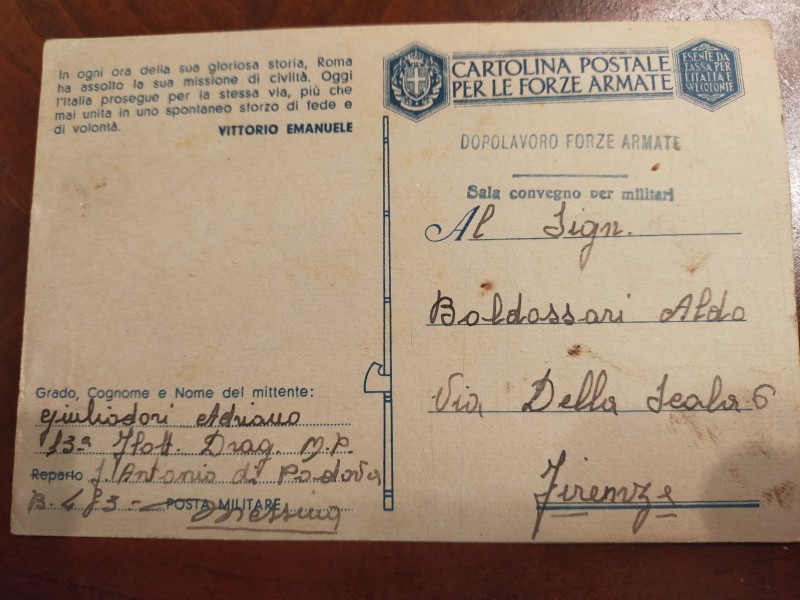 In ogni ora della sua gloriosa storia, Roma
ha assolto la sua missione di civiltà. Oggi
l'Italia prosegue per la stessa via, più che
mai unita in uno spontaneo sforzo di fede e
di volontà. VITTORIO EMANUELE
CARTOLINA POSTALE
PER LE FORZE ARMATE
ESENTE DA
TASSA PER
L'ITALIA E
LE COLONIE
DOPOLAVORO FORZE ARMATE
Sala convegno per militari
Al Sign.
Baldassari Aldo
Via Della Scala 6
Firenze
Grado, Cognome e Nome del mittente:
Giuliodori Adriano
13ª Flott. Drag. M.P.
Reparto S. Antonio di Padova
B. 493 - POSTA MILITARE
Messina